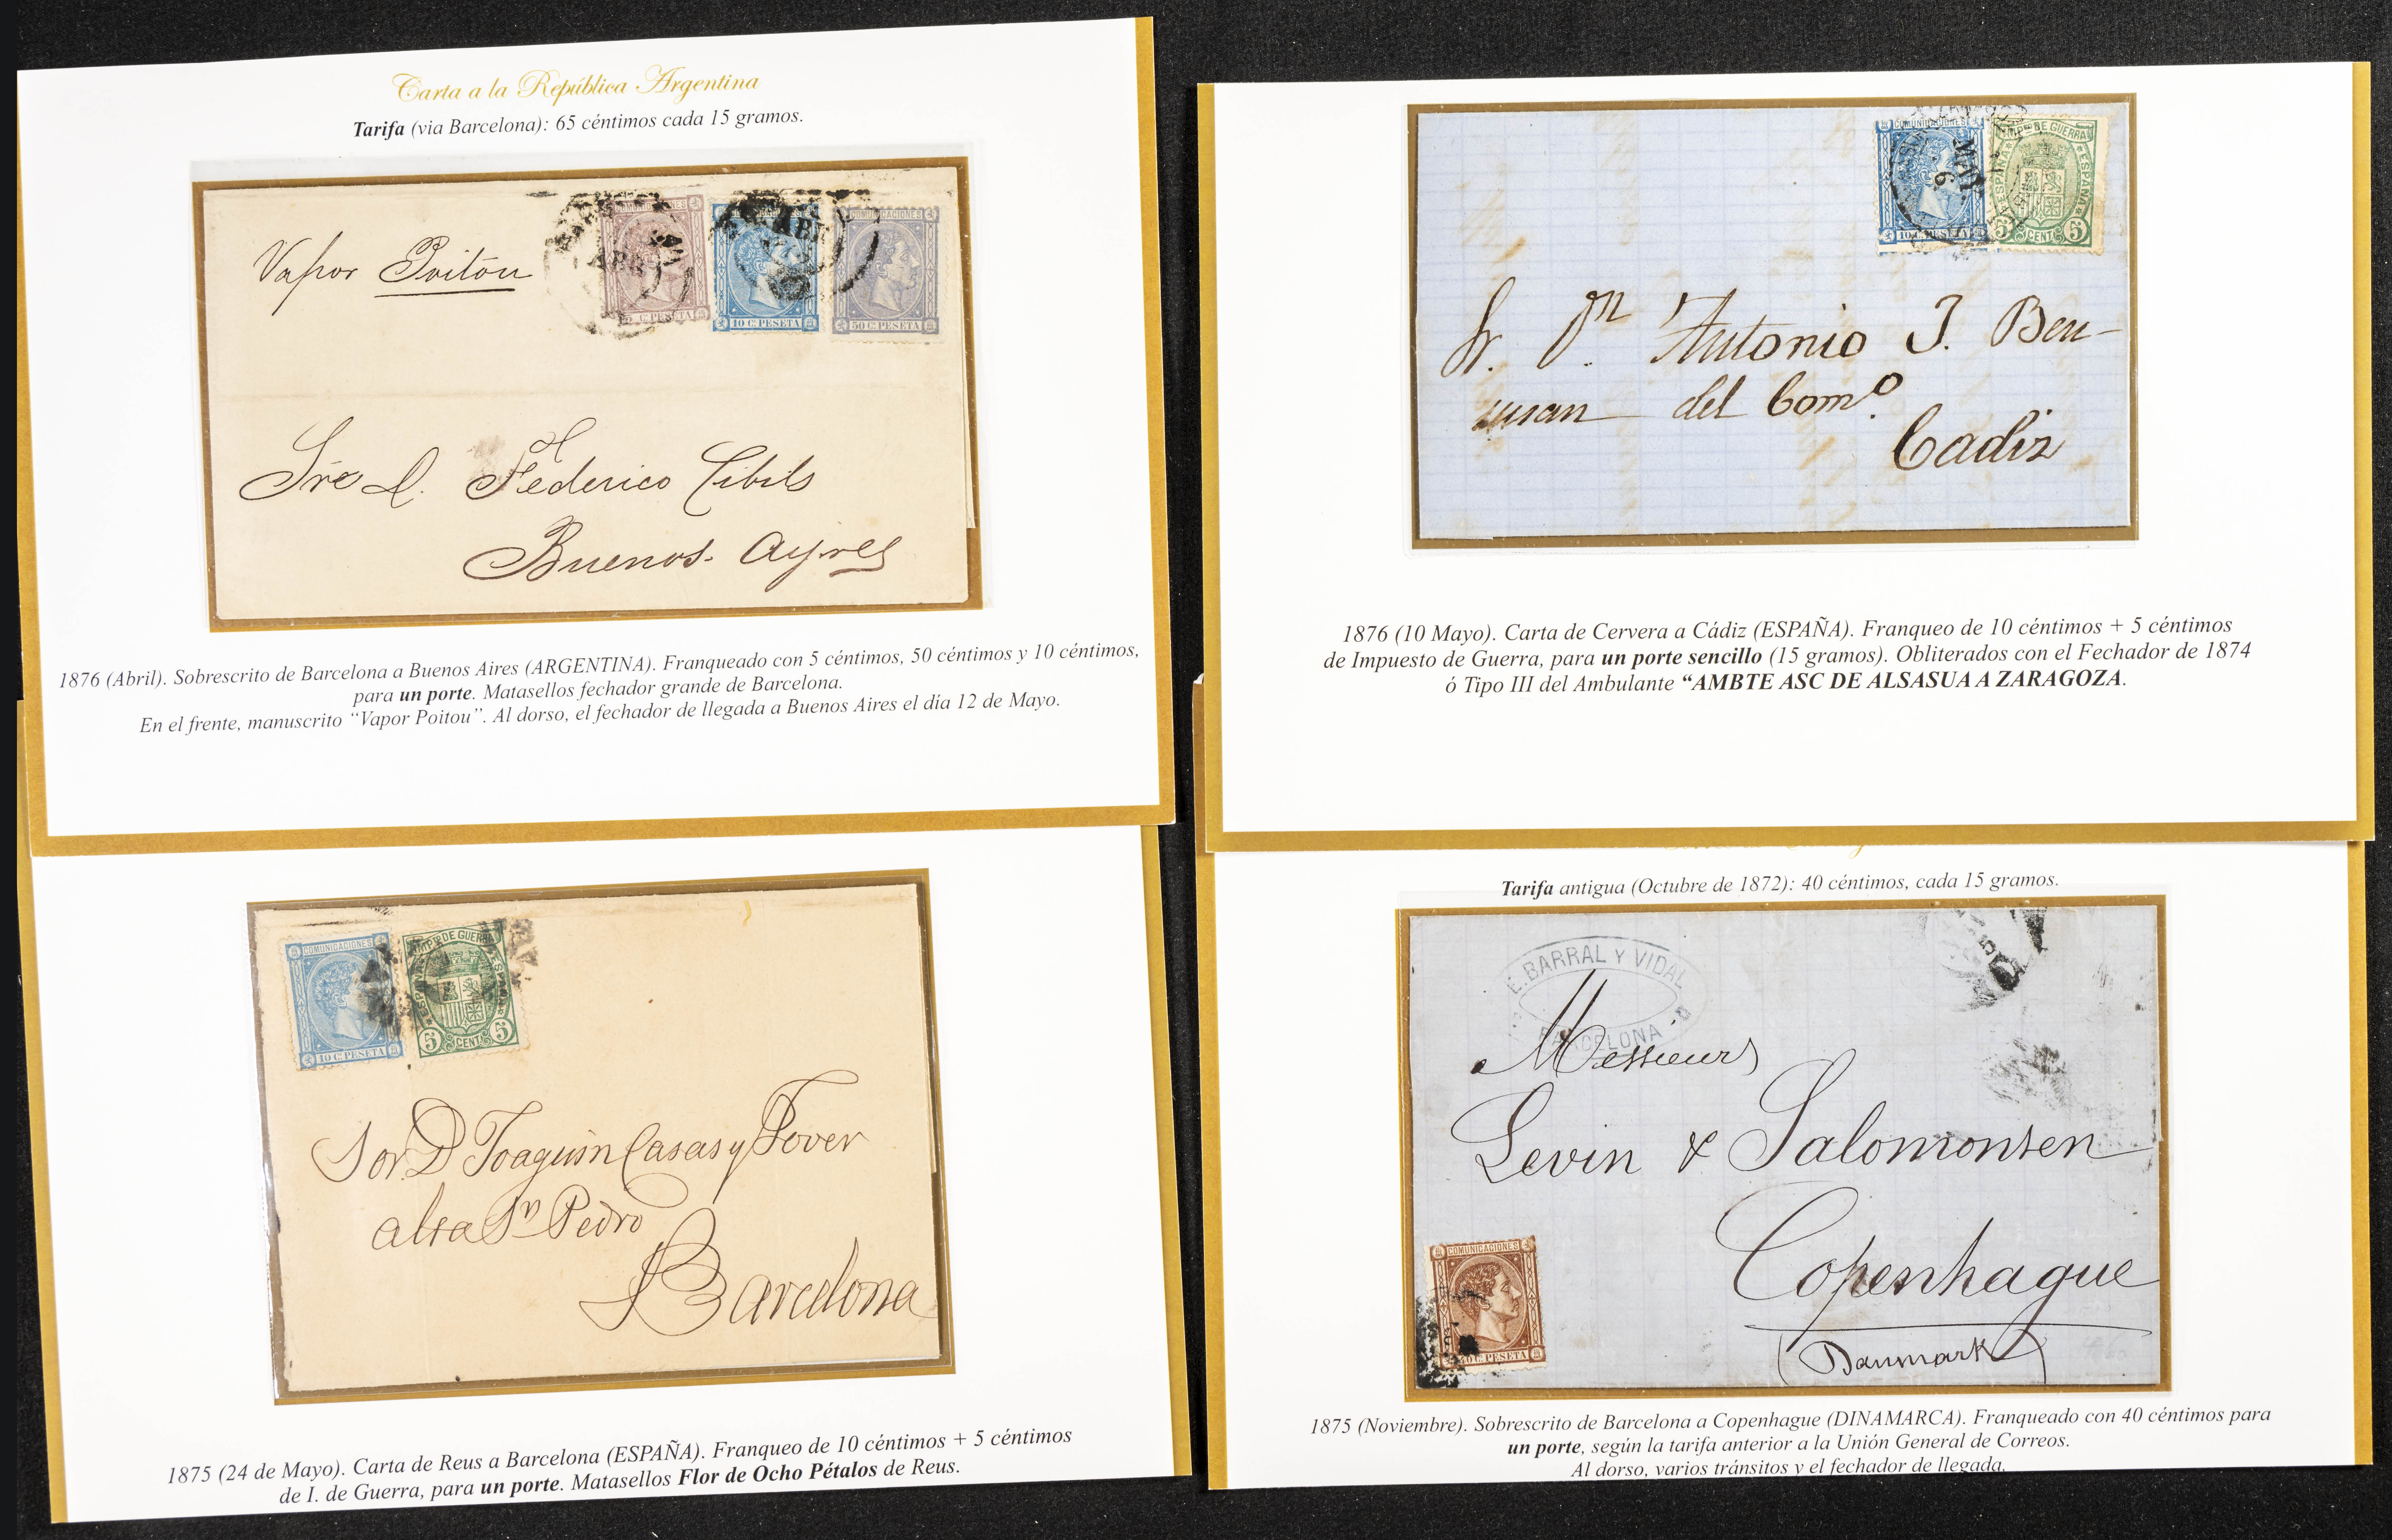 Carta a la República Argentina
Tarifa (via Barcelona): 65 céntimos cada 15 gramos.
COMUNICACIONES
C. PESETA
10 C. PESETA
COMUNICACIONES
50 C. PESETA
ABR
Vapor Poitou
Sre D. Federico Cibils
Buenos Ayres
1876 (Abril). Sobrescrito de Barcelona a Buenos Aires (ARGENTINA). Franqueado con 5 céntimos, 50 céntimos y 10 céntimos,
para un porte. Matasellos fechador grande de Barcelona.
En el frente, manuscrito “Vapor Poitou”. Al dorso, el fechador de llegada a Buenos Aires el día 12 de Mayo.
COMUNICACIONES
10 C. PESETA
IMPto DE GUERRA
ESPAÑA
5 CENTS 5
MAY
Sr. Dn Antonio J. Ben-
susan del Como.
Cadiz
1876 (10 Mayo). Carta de Cervera a Cádiz (ESPAÑA). Franqueo de 10 céntimos + 5 céntimos
de Impuesto de Guerra, para un porte sencillo (15 gramos). Obliterados con el Fechador de 1874
ó Tipo III del Ambulante “AMBTE ASC DE ALSASUA A ZARAGOZA.
COMUNICACIONES
10 C. PESETA
IMPto DE GUERRA
5 CENTS 5
Sor. D Joaquin Casas y Jover
alta Sn Pedro
Barcelona
1875 (24 de Mayo). Carta de Reus a Barcelona (ESPAÑA). Franqueo de 10 céntimos + 5 céntimos
de I. de Guerra, para un porte. Matasellos Flor de Ocho Pétalos de Reus.
Tarifa antigua (Octubre de 1872): 40 céntimos, cada 15 gramos.
E. BARRAL Y VIDAL
BARCELONA
Messieurs
Levin & Salomonsen
Copenhague
(Danmark)
COMUNICACIONES
40 C. PESETA
1875 (Noviembre). Sobrescrito de Barcelona a Copenhague (DINAMARCA). Franqueado con 40 céntimos para
un porte, según la tarifa anterior a la Unión General de Correos.
Al dorso, varios tránsitos y el fechador de llegada.